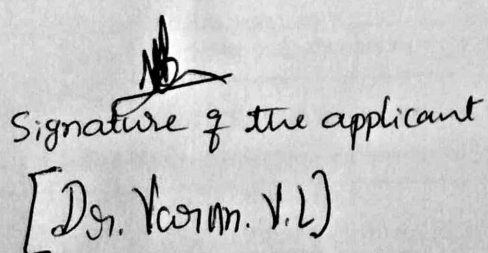 Signature of the applicant
[Dr. Varun. V.L]